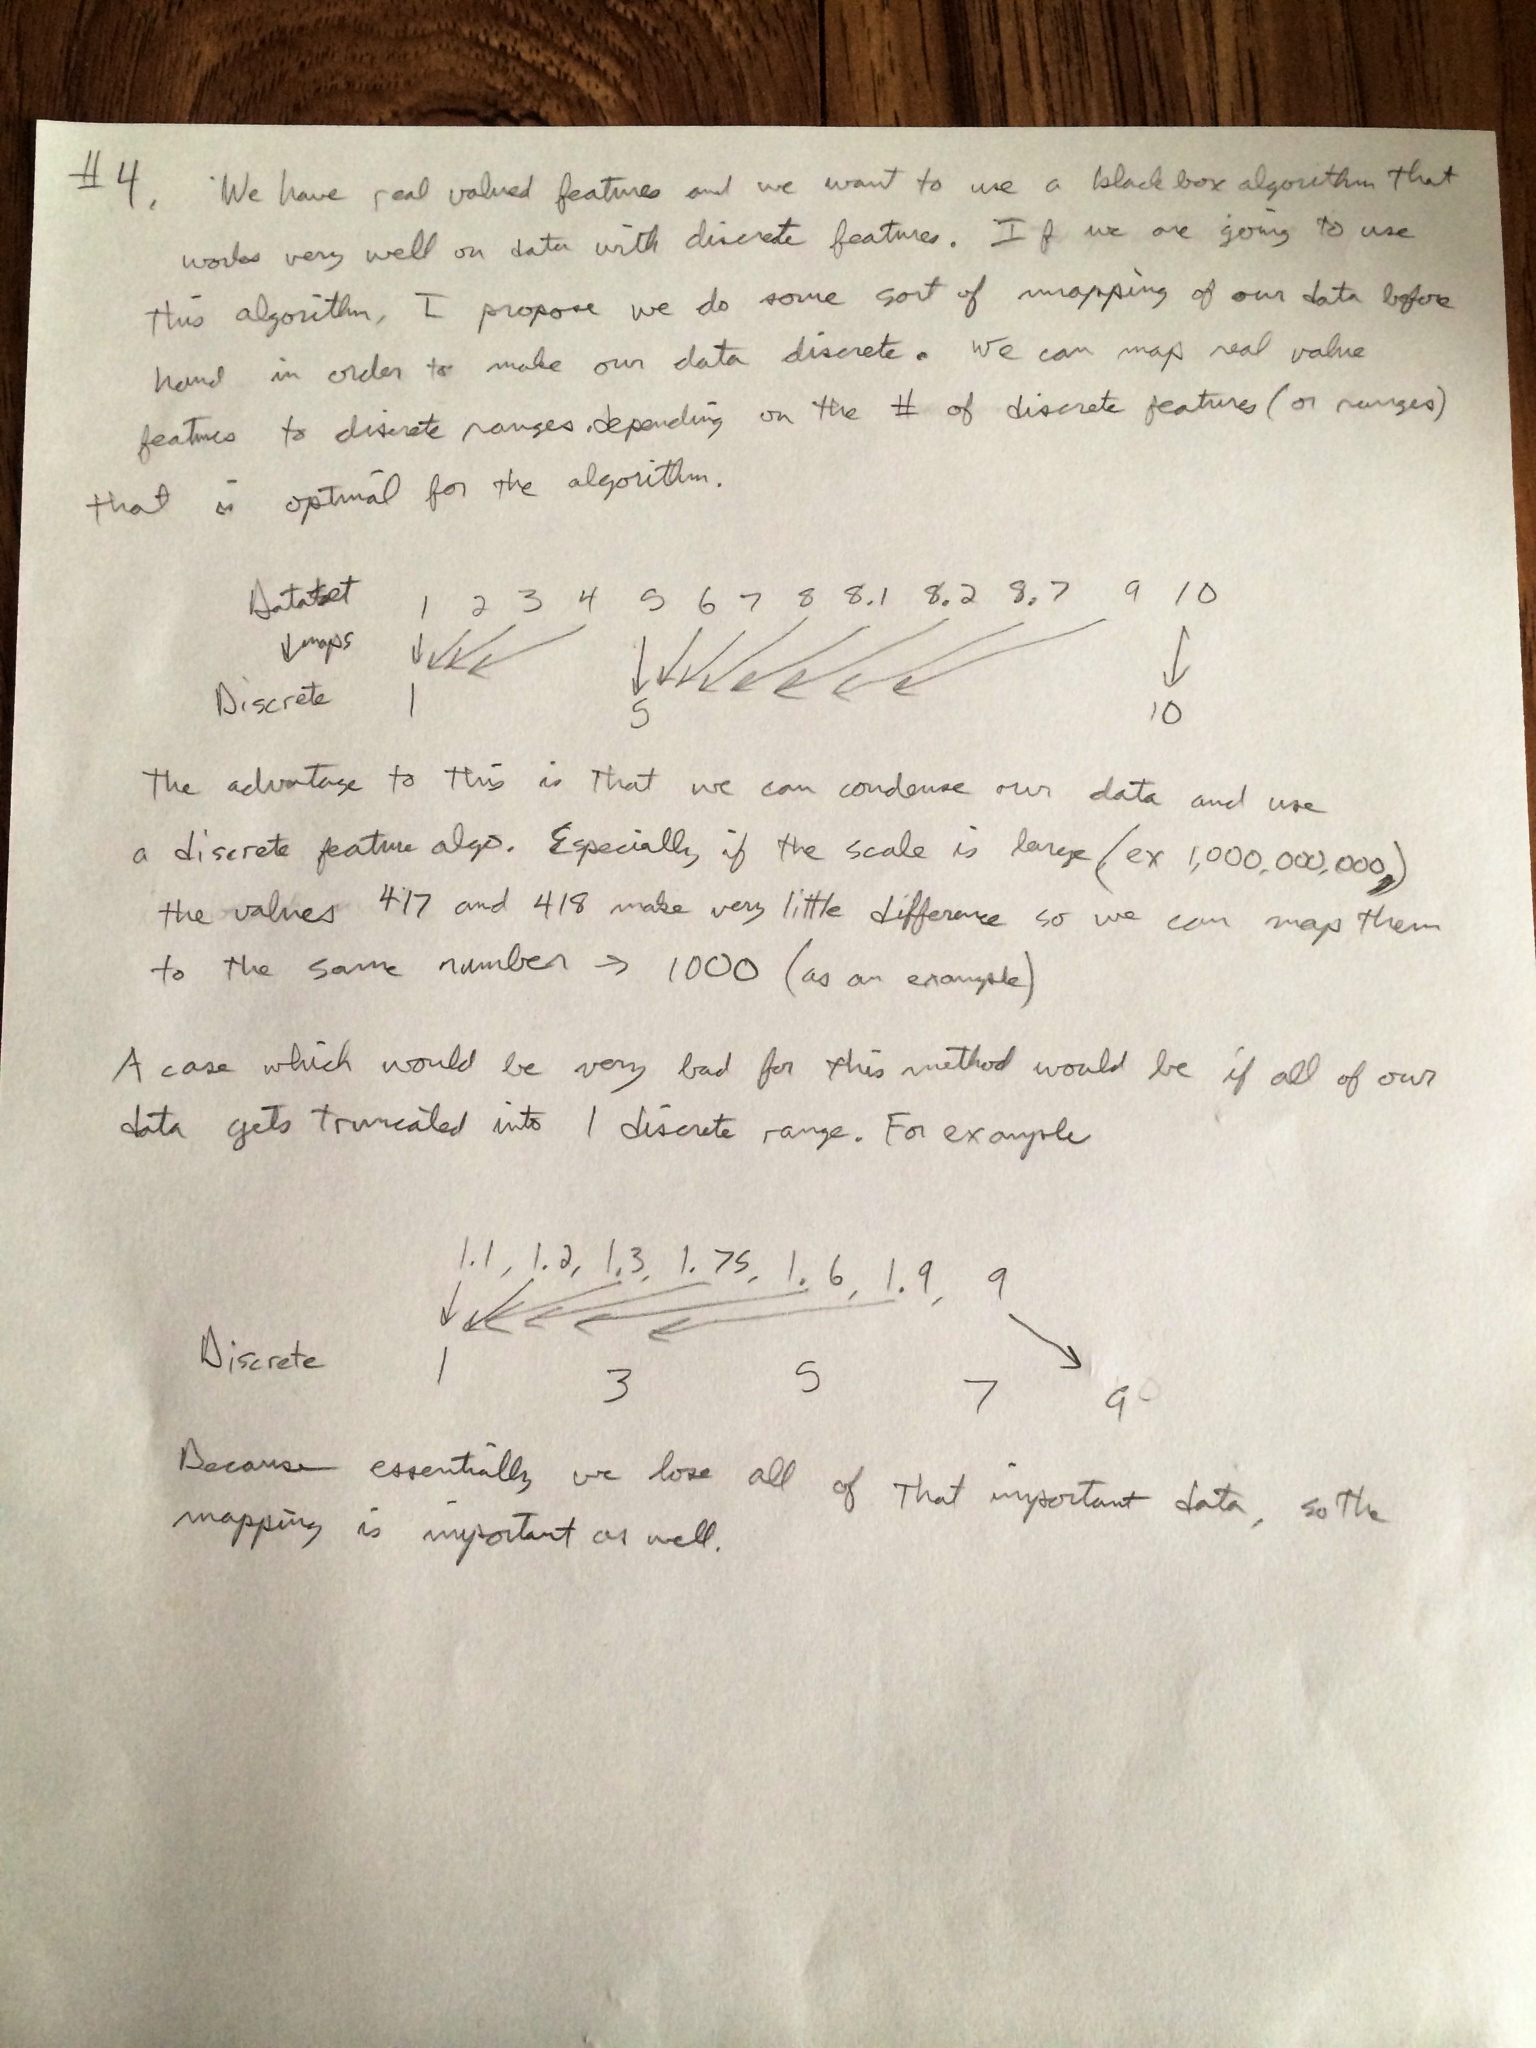 #4. We have real valued features and we want to use a black box algorithm that
works very well on data with discrete features. If we are going to use
this algorithm, I propose we do some sort of mapping of our data before
hand in order to make our data discrete. We can map real value
features to discrete ranges depending on the # of discrete features (or ranges)
that is optimal for the algorithm.
Dataset 1 2 3 4 5 6 7 8 8.1 8.2 8.7 9 10
↓maps
Discrete 1 5 10
The advantage to this is that we can condense our data and use
a discrete feature algo. Especially if the scale is large (ex 1,000,000,000,)
the values 417 and 418 make very little difference so we can map them
to the same number → 1000 (as an example)
A case which would be very bad for this method would be if all of our
data gets truncated into 1 discrete range. For example
1.1, 1.2, 1.3, 1.75, 1.6, 1.9, 9
Discrete 1 3 5 7 9
Because essentially we lose all of that important data, so the
mapping is important as well.